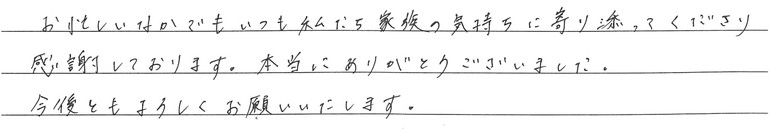 お忙しいなかでもいつも私たち家族の気持ちに寄り添ってくださり
感謝しております。本当にありがとうございました。
今後ともよろしくお願いいたします。